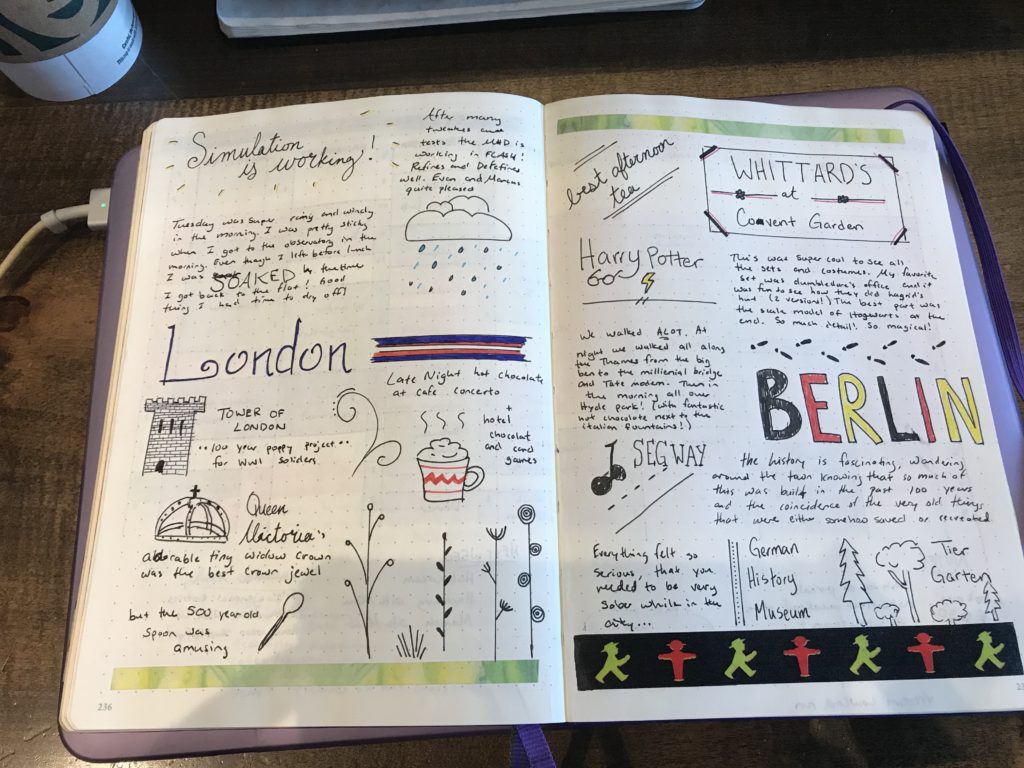 Simulation
is working!
After many
tweakes and
tests the MHD is
working in FLASH!
Refines and Defefines
well. Evan and Marcus
quite pleased
Tuesday was super rainy and windy
in the morning. I was pretty sticky
when I got to the observatory in the
morning. Even though I left before lunch
I was SOAKED by the time
I got back to the flat! Good
thing I had time to dry off!
London
Late Night hot chocolate
at cafe concerto
+
hotel
chocolat
and card
games
TOWER OF
LONDON
100 year poppy project
for WWI soliders
Queen
Victoria's
adorable tiny widow crown
was the best crown jewel
but the 500 year old
spoon was
amusing
236
best afternoon
tea
WHITTARD'S
at
Covent Garden
Harry Potter
This was super cool to see all
the sets and costumes. My favorite
set was dumbledore's office and it
was fun to see how they did hagrid's
hut (2 versions!) The best part was
the scale model of Hogwarts at the
end. So much detail! So magical!
We walked ALOT. At
night we walked all along
the Thames from the big
ben to the millienial bridge
and Tate modern. Then in
the morning all over
Hyde park! (with fantastic
hot chocolate next to the
italian fountains!)
BERLIN
SEGWAY
the history is fascinating, wondering
around the town knowing that so much of
this was built in the past 100 years
and the coincidence of the very old things
that were either somehow saved or recreated
Everything felt so
serious, that you
needed to be very
sober while in the
city...
German
History
Museum
Tier
Garten